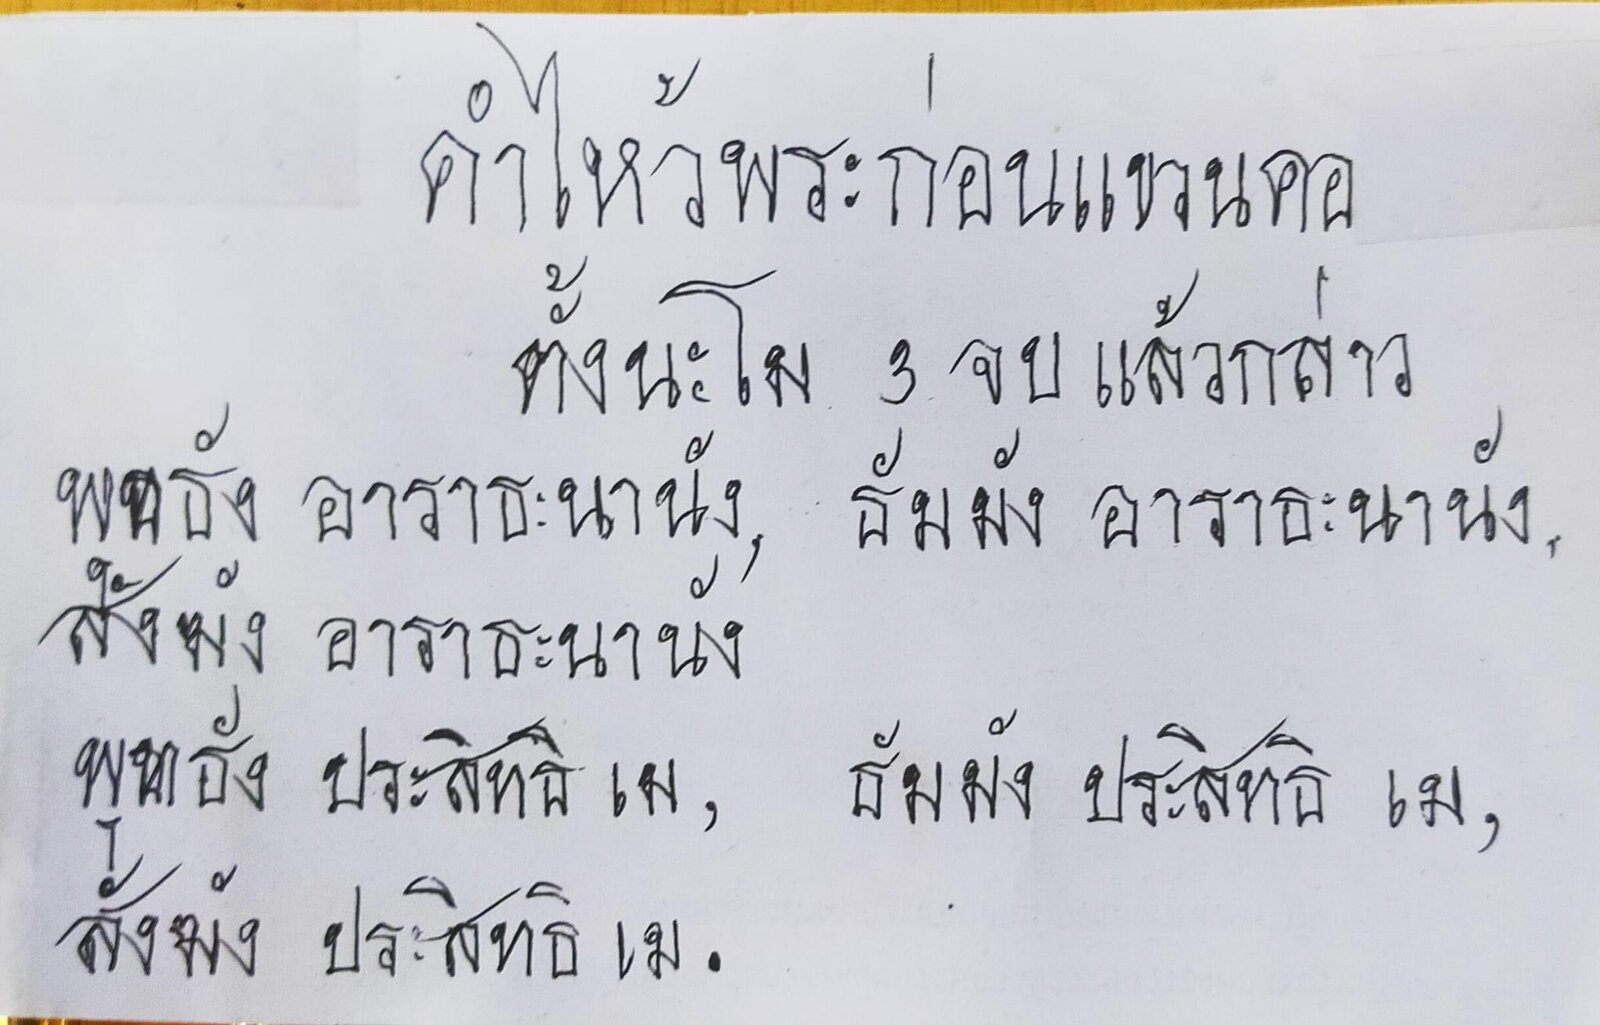 คำไหว้พระก่อนแขวนคอ
ตั้งนะโม 3 จบ แล้วกล่าว
พทธัง อาราธะนานัง, ธัมมัง อาราธะนานัง,
สังฆัง อาราธะนานัง
พทธัง ประสิทธิ เม, ธัมมัง ประสิทธิ เม,
สังฆัง ประสิทธิ เม.